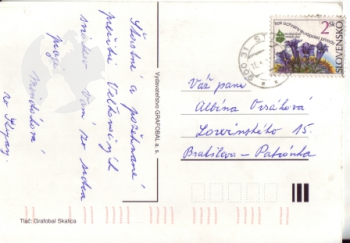 Šťastné a požehnané
prežitie Veľkonočných
sviatkov Vám zo srdca
prajú
zo Skýcov
Vydavateľstvo GRAFOBAL a. s.
Tlač: Grafobal Skalica
2 Sk
SLOVENSKO
Váž. pani
Albína Vrzáková
Lovinského 15.
Bratislava - Patrónka